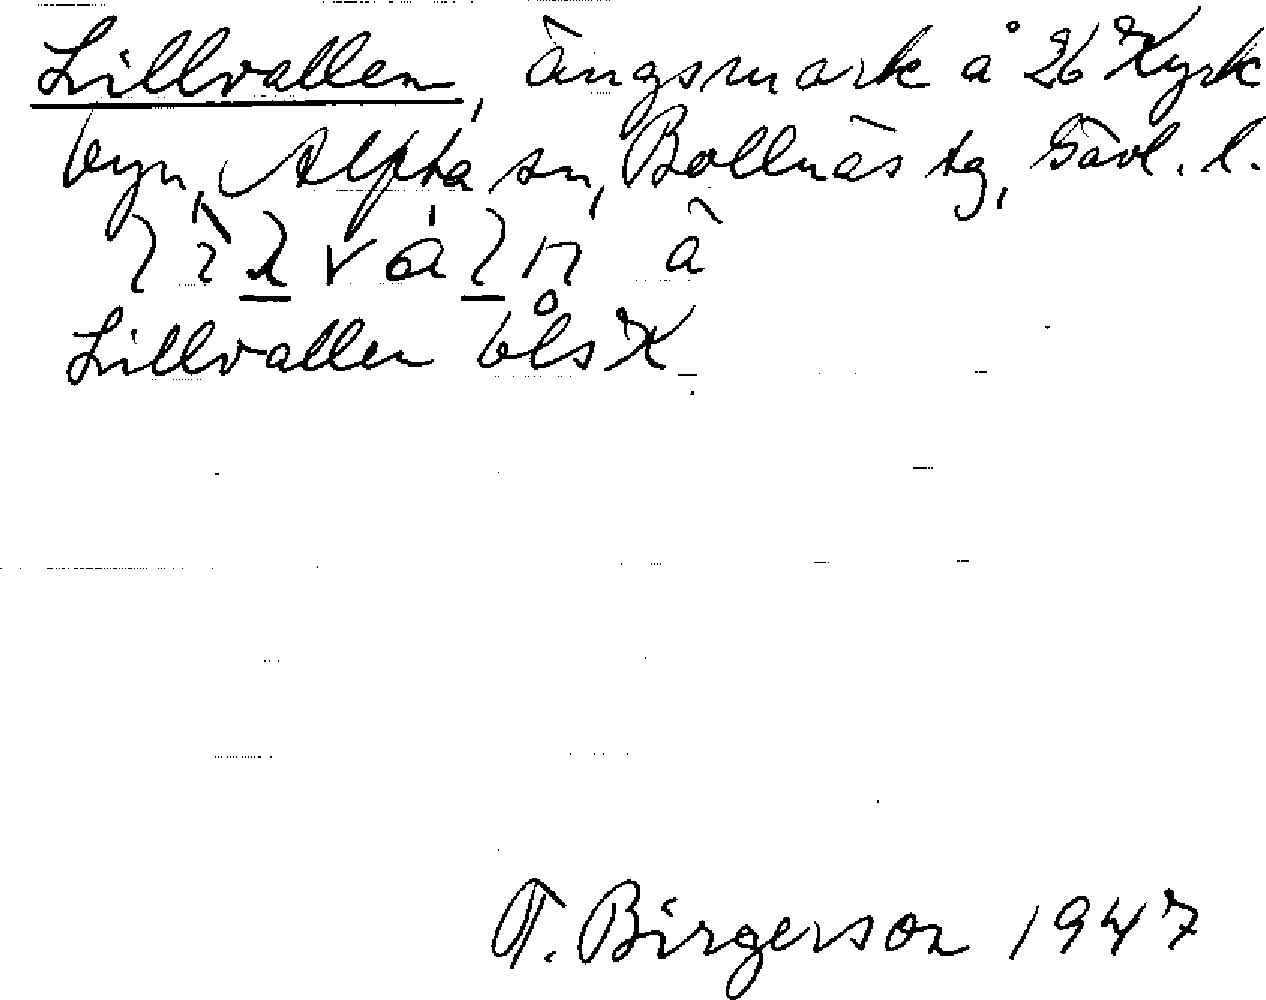 Lillvallen, ängsmark å 26 Kyrk
byn, Alfta sn, Bollnäs tg, Gävl. l.
å
Lillvallen blsK
T. Birgerson 1947